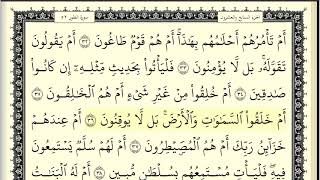 الجزء السابع والعشرون سورة الطور ٥٢
أَمْ تَأْمُرُهُمْ أَحْلَٰمُهُم بِهَٰذَآ ۚ أَمْ هُمْ قَوْمٌ طَاغُونَ ٣٢ أَمْ يَقُولُونَ
تَقَوَّلَهُۥ ۚ بَل لَّا يُؤْمِنُونَ ٣٣ فَلْيَأْتُوا۟ بِحَدِيثٍ مِّثْلِهِۦٓ إِن كَانُوا۟
صَٰدِقِينَ ٣٤ أَمْ خُلِقُوا۟ مِنْ غَيْرِ شَىْءٍ أَمْ هُمُ ٱلْخَٰلِقُونَ ٣٥
أَمْ خَلَقُوا۟ ٱلسَّمَٰوَٰتِ وَٱلْأَرْضَ ۚ بَل لَّا يُوقِنُونَ ٣٦ أَمْ عِندَهُمْ
خَزَآئِنُ رَبِّكَ أَمْ هُمُ ٱلْمُصَۣيْطِرُونَ ٣٧ أَمْ لَهُمْ سُلَّمٌ يَسْتَمِعُونَ
فِيهِ ۖ فَلْيَأْتِ مُسْتَمِعُهُم بِسُلْطَٰنٍ مُّبِينٍ ٣٨ أَمْ لَهُ ٱلْبَنَٰتُ